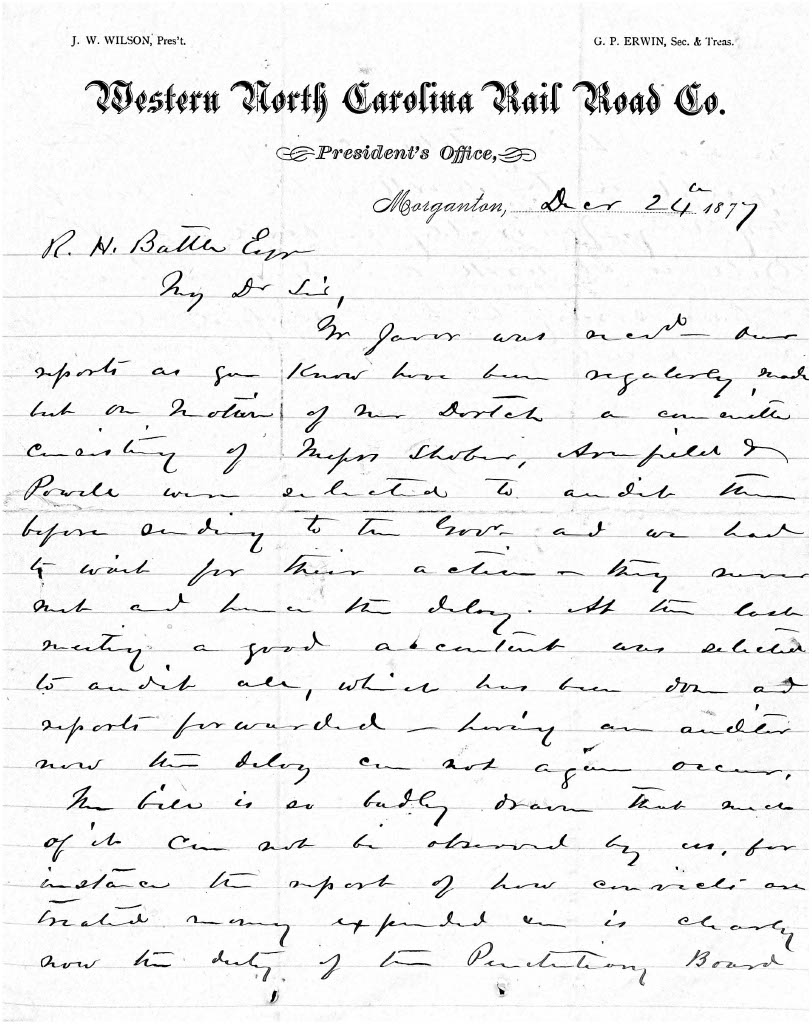 J. W. WILSON, Pres't.
G. P. ERWIN, Sec. & Treas.
Western North Carolina Rail Road Co.
President's Office,
Morganton, Decr 24th 1877
R. H. Battle Esqr
My Dr Sir,
Yr favor was recd — Our
reports as you know have been regularly made
but on motion of Mr Dortch a committe
consisting of Messrs Shober, Armfield &
Powell were selected to audit them
before sending to the Govr and we had
to wait for their action — they never
met and hence the delay. At the last
meeting a good accountant was selected
to audit all, which has been done and
reports forwarded — having an auditor
now the delay can not again occur.
The bill is so badly drawn that much
of it can not be observed by us, for
instance the report of how convicts are
treated money expended is clearly
now the duty of the Penitentiary Board